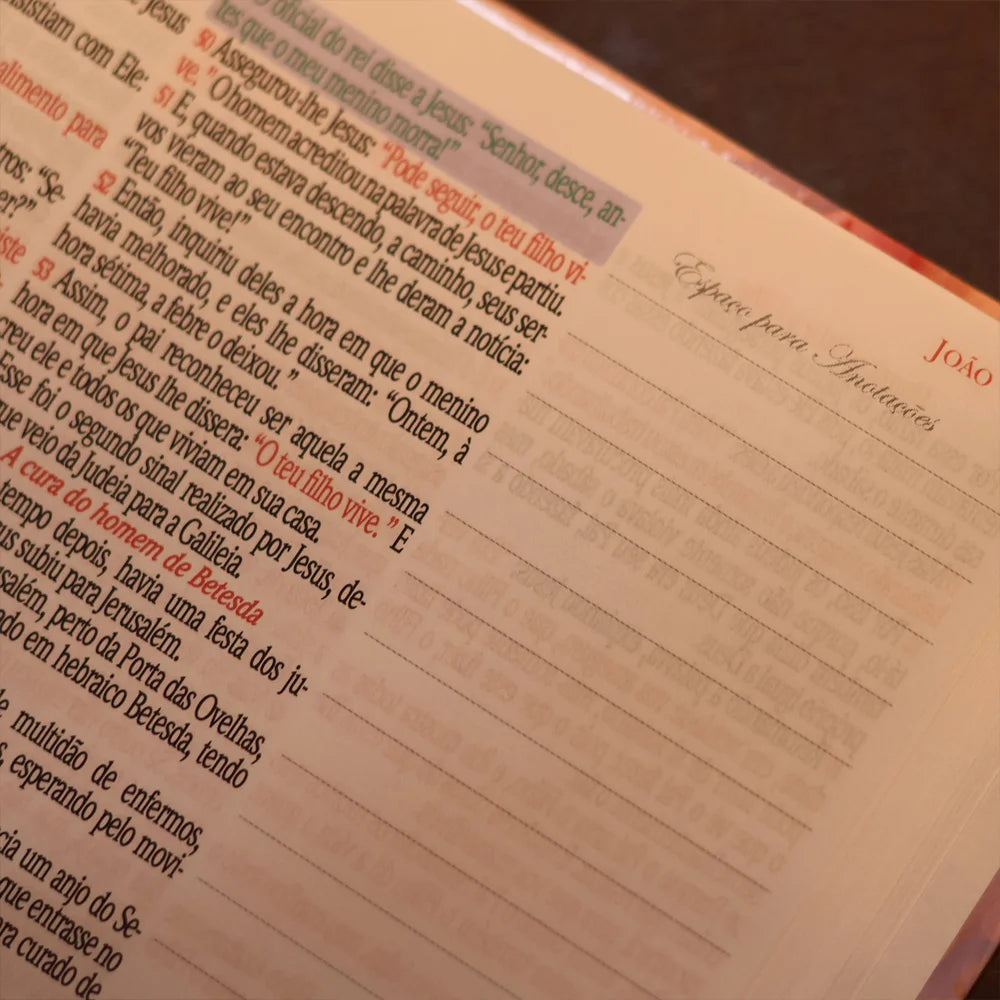 de Jesus
sistiam com Ele:
alimento para
tros: “Se-
er?”
O oficial do rei disse a Jesus: “Senhor, desce, an-
tes que o meu menino morra!”
50 Assegurou-lhe Jesus: “Pode seguir, o teu filho vi-
ve.” O homem acreditou na palavra de Jesus e partiu.
51 E, quando estava descendo, a caminho, seus ser-
vos vieram ao seu encontro e lhe deram a notícia:
“Teu filho vive!”
52 Então, inquiriu deles a hora em que o menino
havia melhorado, e eles lhe disseram: “Ontem, à
hora sétima, a febre o deixou.”
53 Assim, o pai reconheceu ser aquela a mesma
hora em que Jesus lhe dissera: “O teu filho vive.” E
creu ele e todos os que viviam em sua casa.
Esse foi o segundo sinal realizado por Jesus, de-
que veio da Judeia para a Galileia.
A cura do homem de Betesda
tempo depois, havia uma festa dos ju-
us subiu para Jerusalém.
salém, perto da Porta das Ovelhas,
ado em hebraico Betesda, tendo
e multidão de enfermos,
s, esperando pelo movi-
cia um anjo do Se-
que entrasse no
ra curado de
Espaço para Anotações
JOÃO